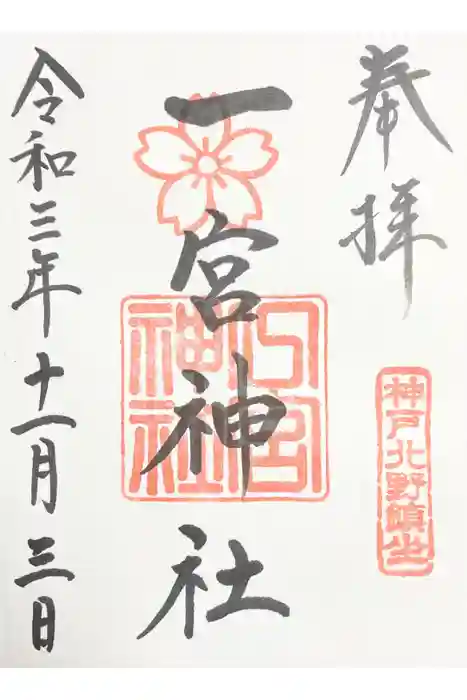 奉拝
神戸北野鎮坐
一宮神社
一宮神社
令和三年十一月三日